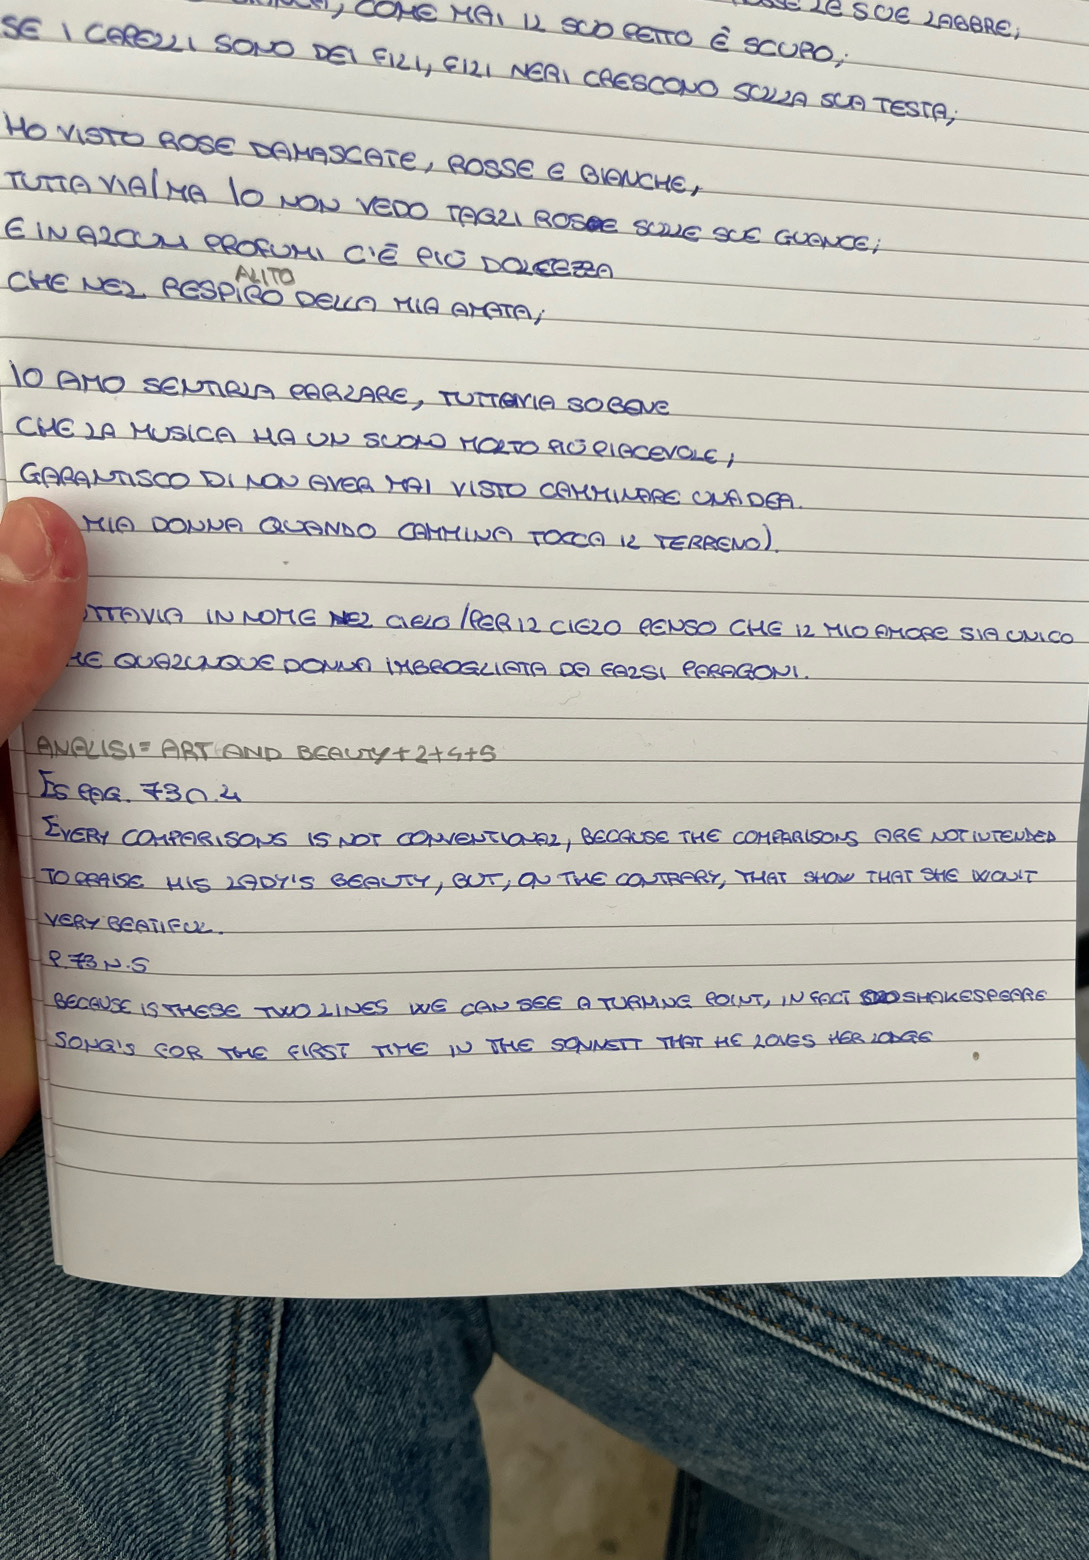 COME MAI IL SUO PETTO È SCURO;
SE I CAPELLI SONO DEI FILI, FILI NERI CRESCONO SULLA SUA TESTA;
HO VISTO ROSE DAMASCATE, ROSSE E BIANCHE,
TUTTAVIA/MA IO NON VEDO TAGLI ROSE SULLE SUE GUANCE;
E IN ALCUNI PROFUMI C'È PIÙ DOLCEZZA
ALITO
CHE NEL RESPIRO DELLA MIA AMATA;
IO AMO SENTIRLA PARLARE, TUTTAVIA SO BENE
CHE LA MUSICA HA UN SUONO MOLTO PIÙ PIACEVOLE;
GARANTISCO DI NON AVER MAI VISTO CAMMINARE UNA DEA.
MIA DONNA QUANDO CAMMINA TOCCA IL TERRENO).
TTAVIA IN NOME NEL CIELO/PER IL CIELO PENSO CHE IL MIO AMORE SIA UNICO
HE QUALUNQUE DONNA IMBROGLIATA DA FALSI PARAGONI.
ANALISI= ART AND BEAUTY+2+4+5
ES PAG. 73 n.4
EVERY COMPARISONS IS NOT CONVENTIONAL, BECAUSE THE COMPARISONS ARE NOT INTENDED
TO PRAISE HIS LADY'S BEAUTY, BUT, ON THE CONTRARY, THAT SHOW THAT SHE WON'T
VERY BEATIFUL.
P.73 N.5
BECAUSE IS THESE TWO LINES WE CAN SEE A TURNING POINT, IN FACT SHAKESPEARE
SONG'S FOR THE FIRST TIME IN THE SONNETT THAT HE LOVES HER